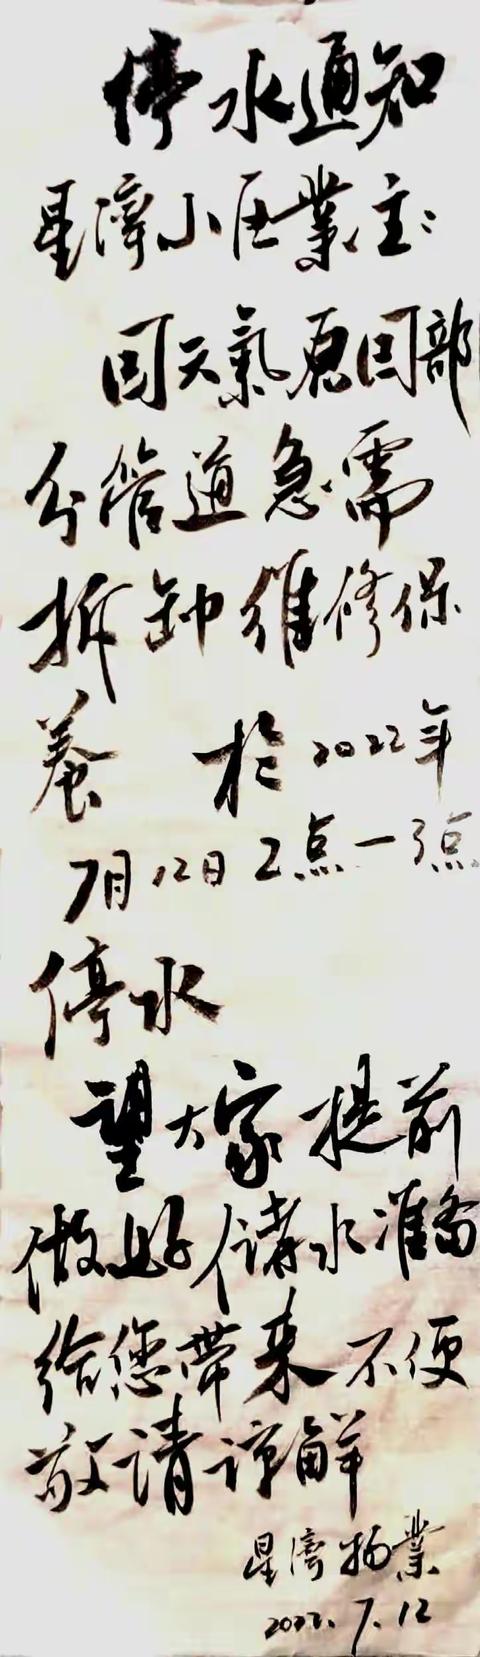 停水通知
星濟小区業主：
因天氣原因部
分管道急需
拆卸維修保
養 於2022年
7月12日2点一3点
停水
望大家提前
做好储水准备
给您带来不便
敬请谅解
星濟物業
2022.7.12